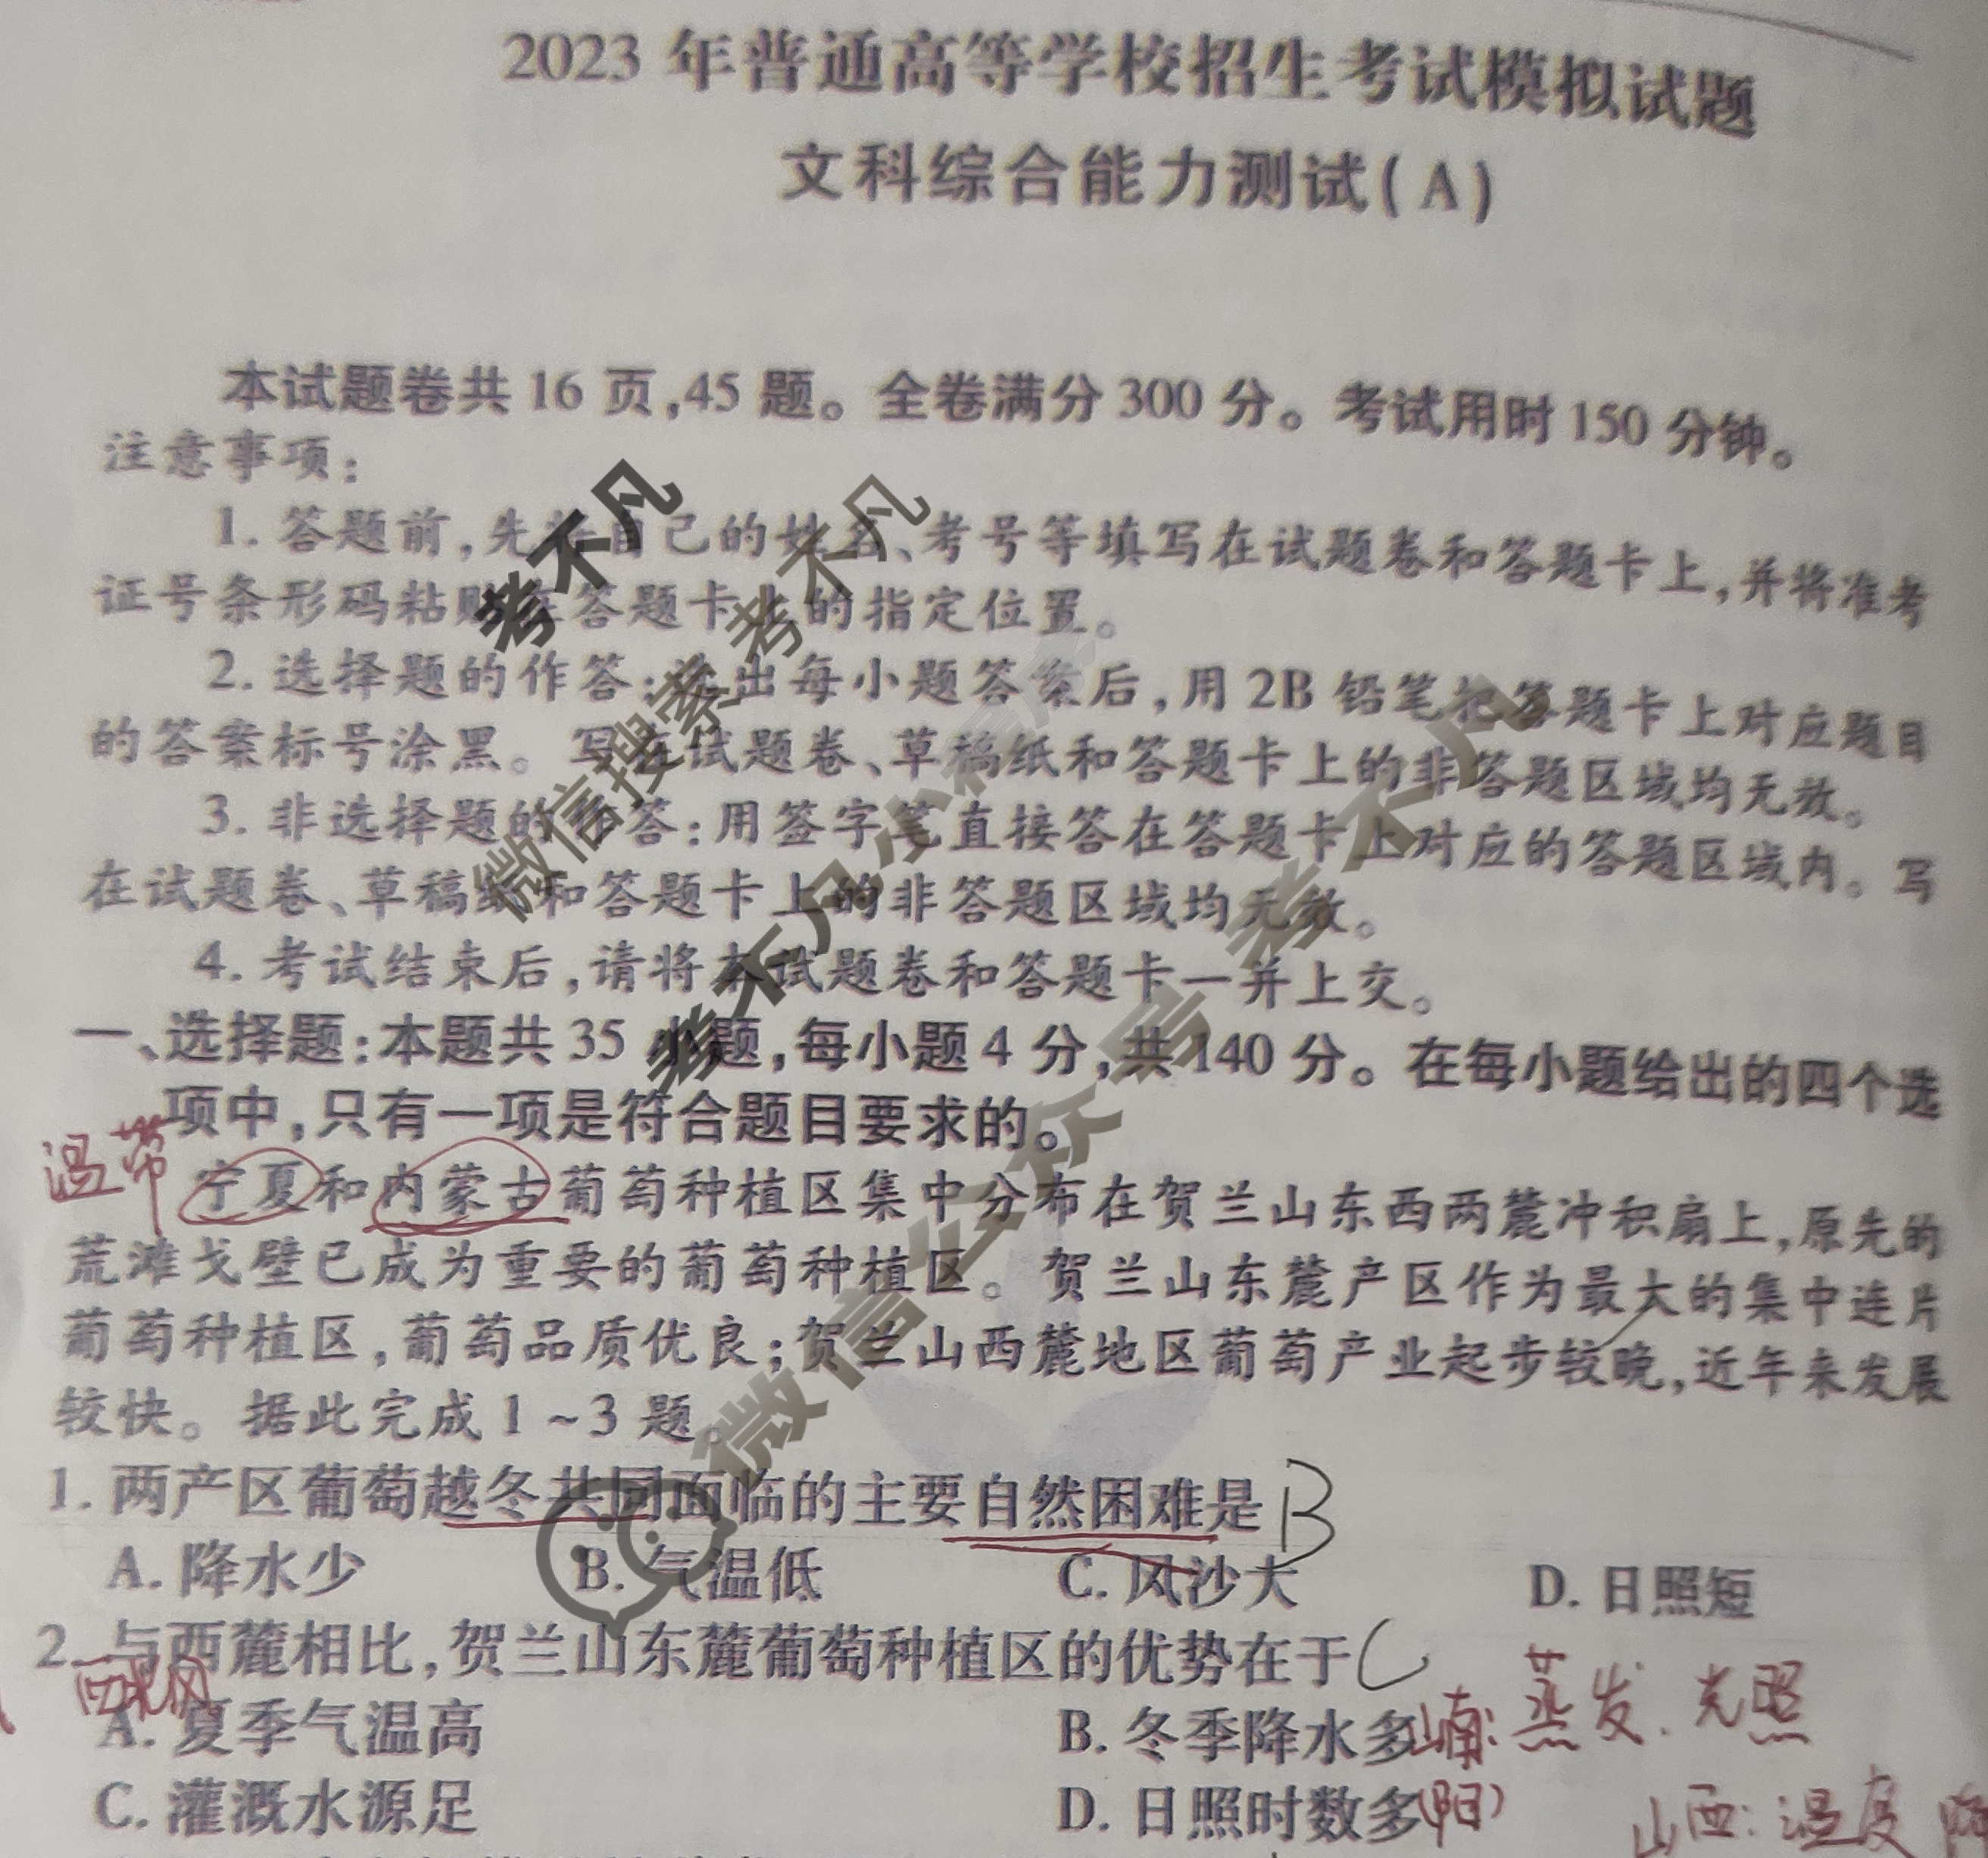 2023年普通高等学校招生考试模拟试题
文科综合能力测试(A)
本试题卷共16页,45题。全卷满分300分。考试用时150分钟。
注意事项:
1. 答题前,先将自己的姓名、考号等填写在试题卷和答题卡上,并将准考
证号条形码粘贴在答题卡上的指定位置。
2. 选择题的作答:选出每小题答案后,用2B铅笔把答题卡上对应题目
的答案标号涂黑。写在试题卷、草稿纸和答题卡上的非答题区域均无效。
3. 非选择题的作答:用签字笔直接答在答题卡上对应的答题区域内。写
在试题卷、草稿纸和答题卡上的非答题区域均无效。
4. 考试结束后,请将本试题卷和答题卡一并上交。
一、选择题:本题共35小题,每小题4分,共140分。在每小题给出的四个选
项中,只有一项是符合题目要求的。
温带
宁夏和内蒙古葡萄种植区集中分布在贺兰山东西两麓冲积扇上,原先的
荒滩戈壁已成为重要的葡萄种植区。贺兰山东麓产区作为最大的集中连片
葡萄种植区,葡萄品质优良;贺兰山西麓地区葡萄产业起步较晚,近年来发展
较快。据此完成1~3题。
1. 两产区葡萄越冬共同面临的主要自然困难是 B
A. 降水少 B. 气温低 C. 风沙大 D. 日照短
2. 与西麓相比,贺兰山东麓葡萄种植区的优势在于 C
西北风
A. 夏季气温高 B. 冬季降水多
山南:蒸发.光照
C. 灌溉水源足 D. 日照时数多
(阳)
山西:温度
考不凡
微信搜索 考不凡
考不凡小程序
微信公众号 考不凡